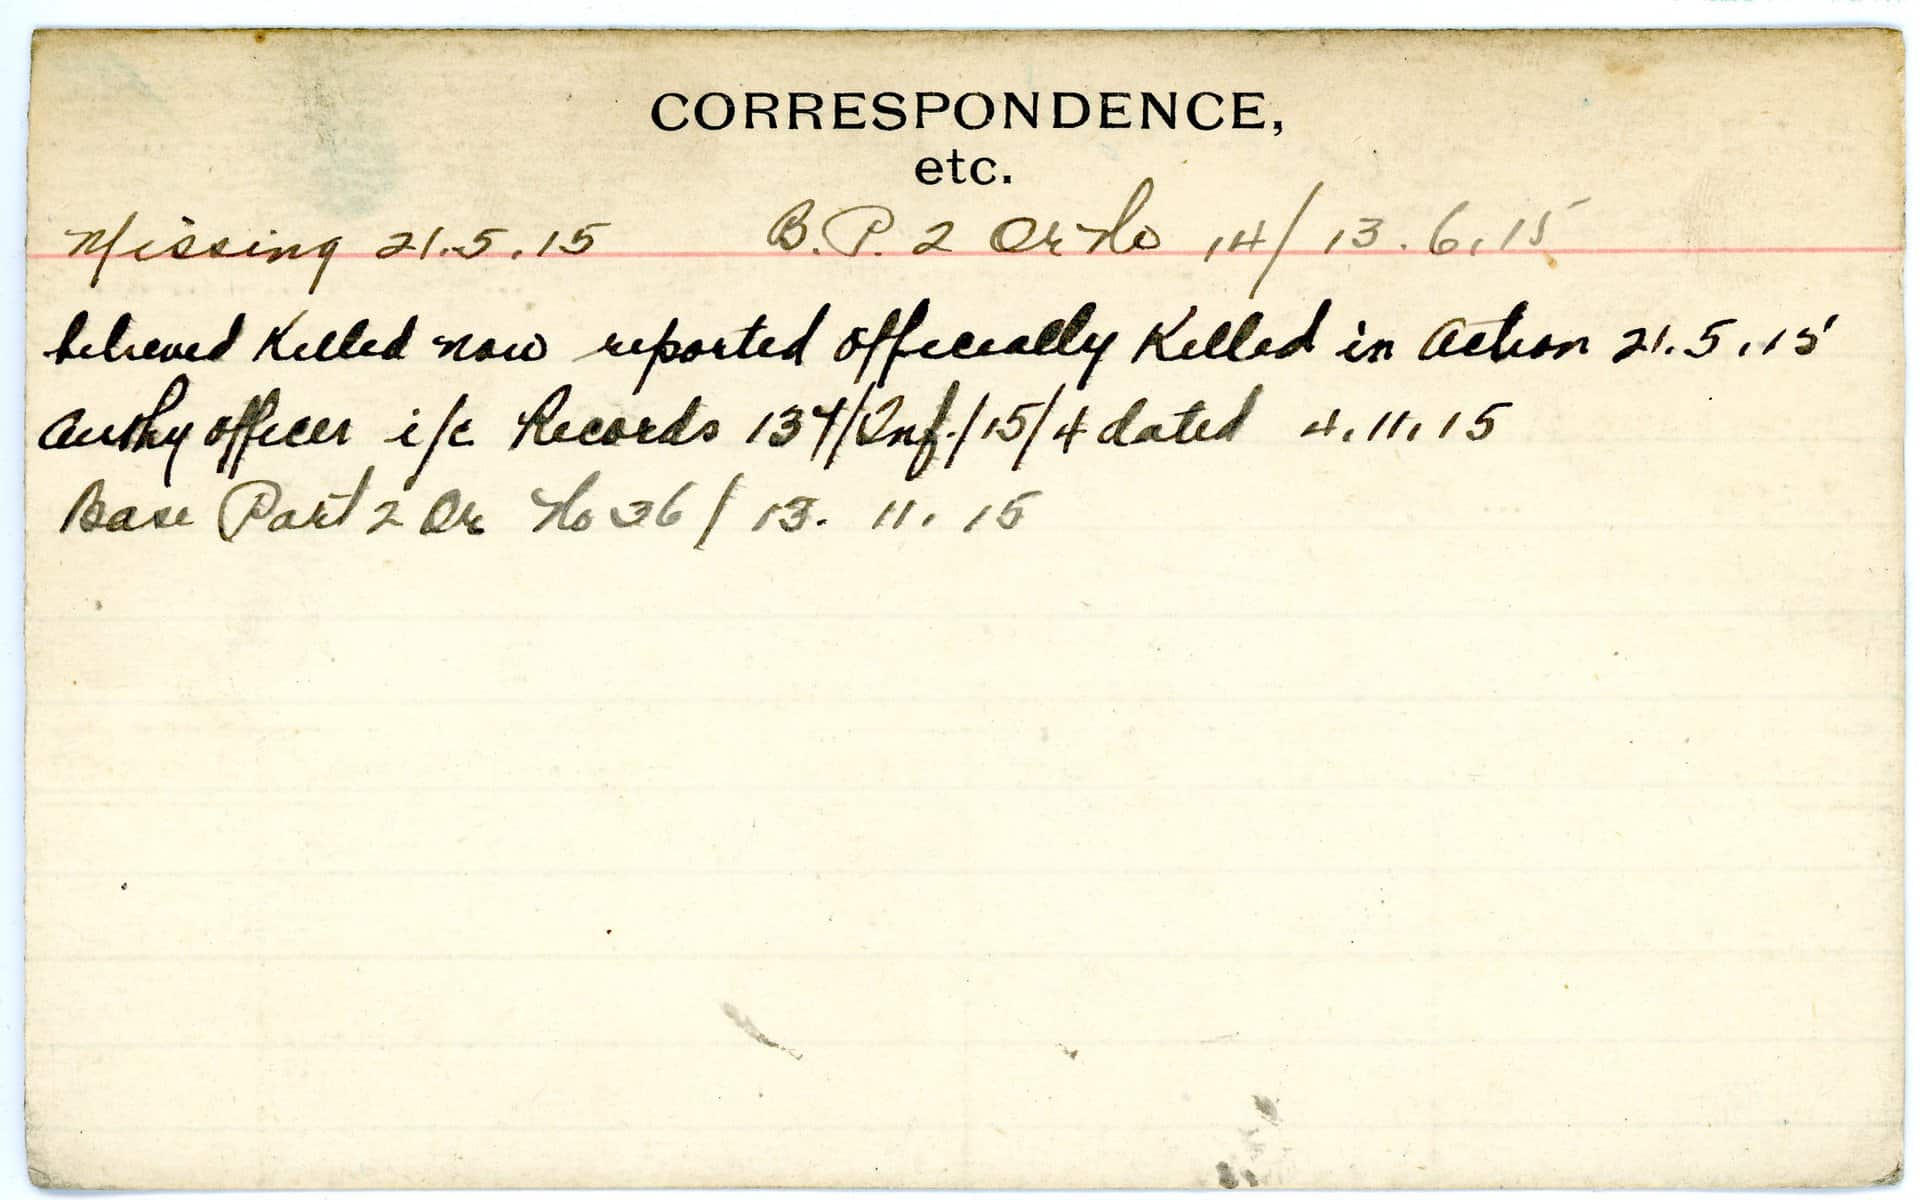 CORRESPONDENCE,
etc.
Missing 21.5.15 B.P. 2 Or No 14/13.6.15
believed Killed now reported officially Killed in Action 21.5.15
Authy officer i/c Records 137/Inf./15/4 dated 4.11.15
Base Part 2 Or No 36/13.11.15